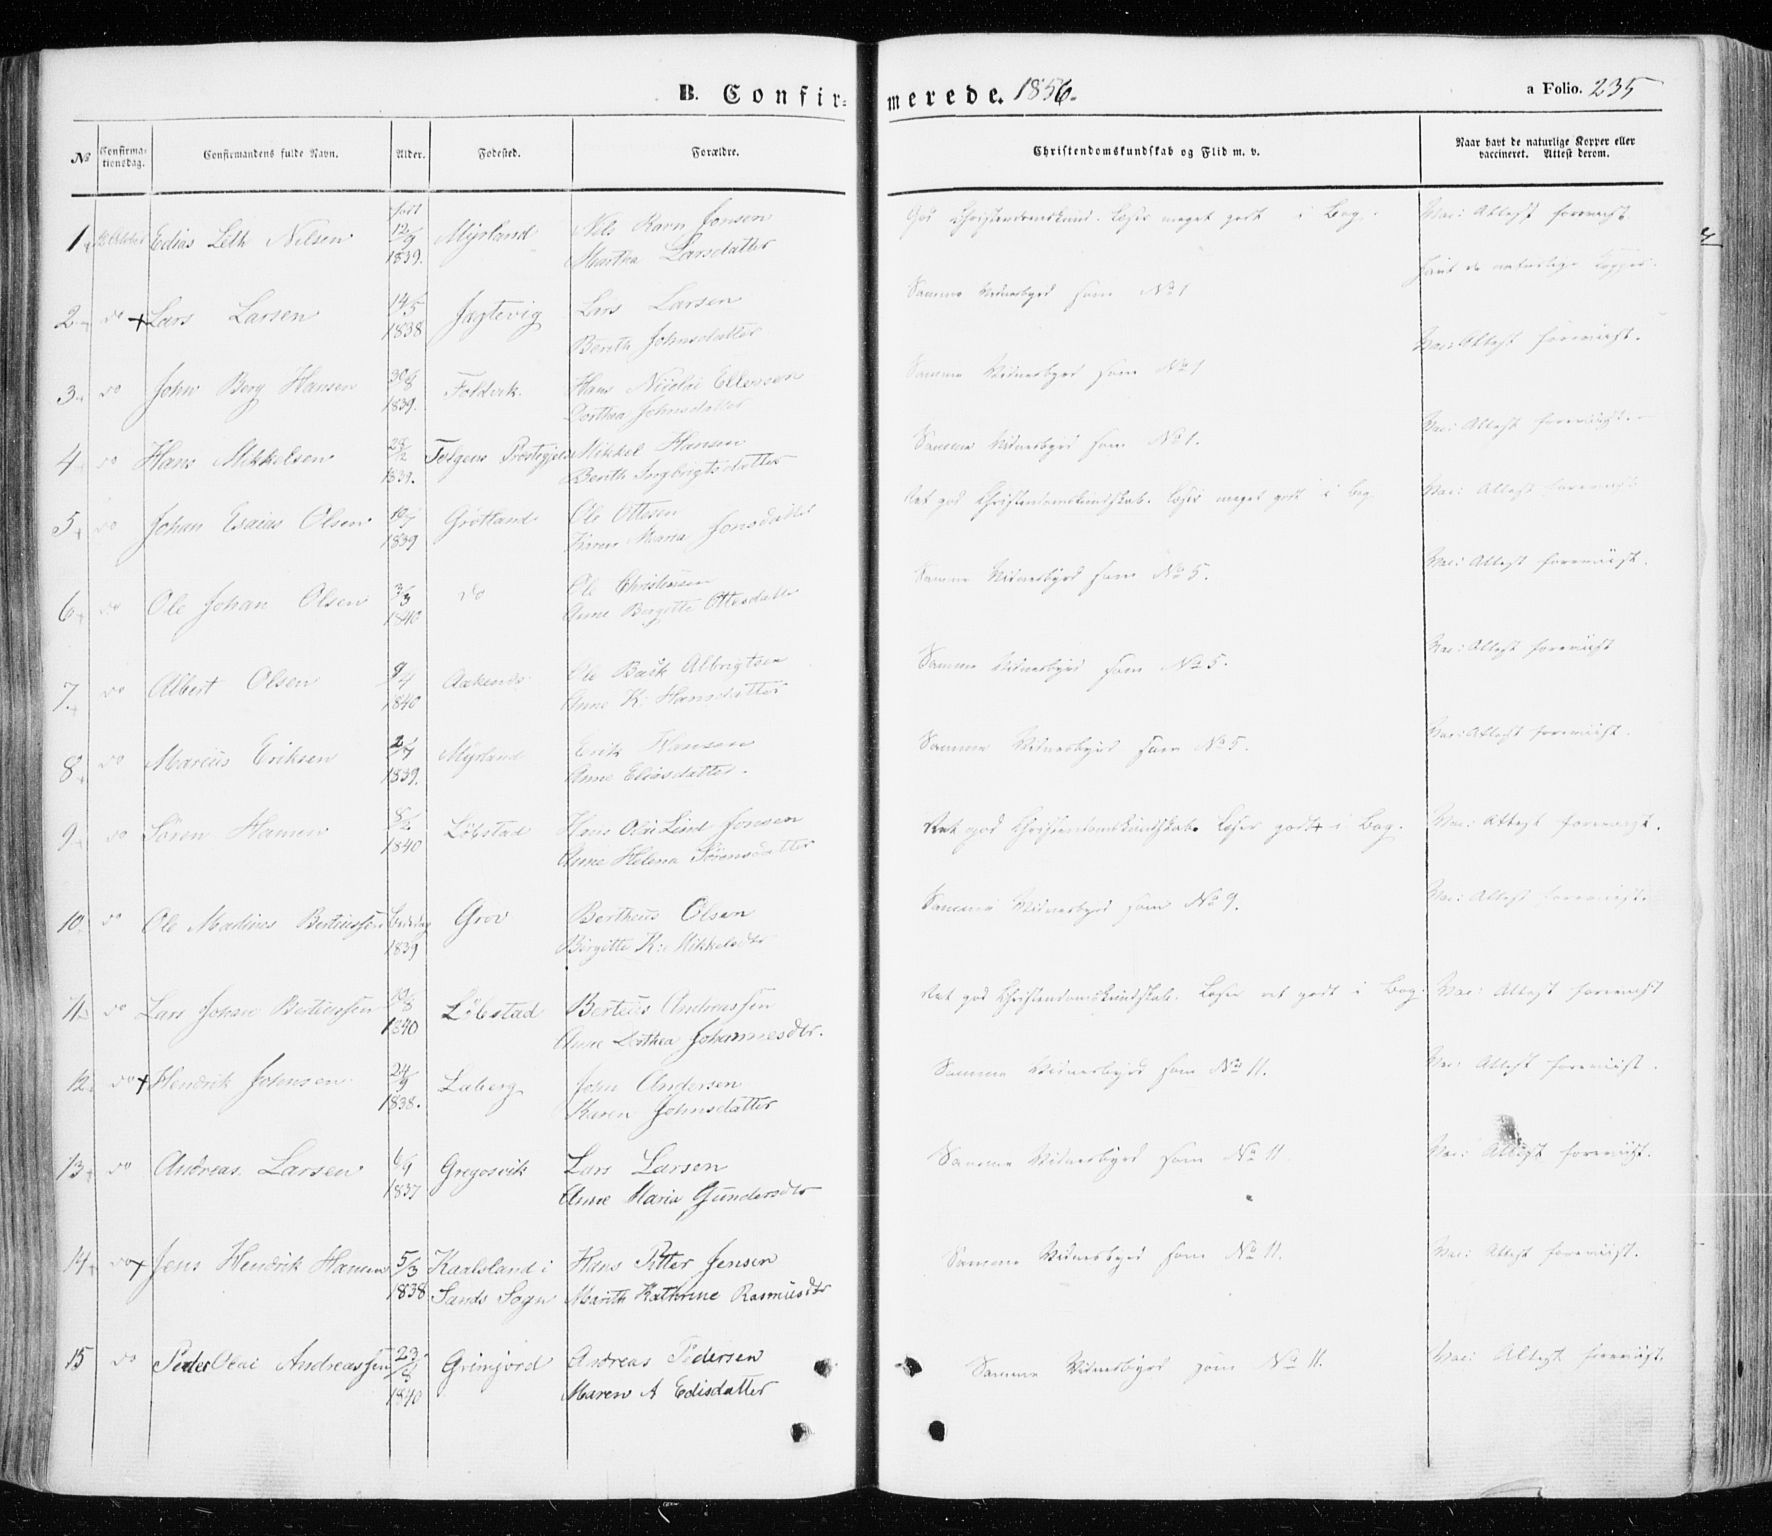 B. Confir-
merede. 1856.
a Folio. 235
No
Confirma-
tionsdag.
Confirmandens fulde Navn.
Alder.
Fødested.
Forældre.
Christendomskundskab og Flid m. v.
Naar havt de naturlige Kopper eller
vaccineret. Attest derom.
født
1 Edias Leth Nilsen 12/9 Myrland Nils Jonsen God Christendomskund. Læser meget godt i Bog. Vac: Attest foreviist
1839. Martha Larsdatter
havt de naturlige Kopper.
2 do + Lars Larsen 14/5 Jagtevig Lars Larsen Samme Vidnesbyrd som No 1
1838 Berith Johnsdatter
Vac: Attest foreviist.
3 do John Berg Hansen 30/8 Foldvik. Hans Nicolai Ellensen Samme Vidnesbyrd som No 1
1839. Dorthea Johnsdatter
4 do Hans Mikkelsen Mikkel Hansen Samme Vidnesbyrd som No 1. Vac: Attest foreviist
1839. Berith Ingbrigtsdatter
5 do Johan Esaias Olsen 10/7 Grøtland Ole Ottesen Ret god Christendomskundskab. Læser meget godt i Bog Vac: Attest foreviist
1839 Karen Maria Jonsdatter
6 do Ole Johan Olsen 3/3 do Ole Christensen Samme Vidnesbyrd som No 5. Vac: Attest foreviist.
1840 Anne Birgitte Ottesdatter
7. do Albert Olsen 9/4 Ole Albrigtsen Samme Vidnesbyrd som No 5. Vac: Attest foreviist
1840 Anne K: Hansdatter
8 do Marcus Eriksen 2/7 Myrland Erik Hansen Samme Vidnesbyrd som No 5. Vac: Attest foreviist.
1839. Anne Eliasdatter.
9 do Søren Hansen 8/2 Løbstad Hans Olai Lind Jonsen Ret god Christendomskundskab. Læser godt i Bog. Vac: Attest foreviist.
1840 Anne Helena Sørensdatter
10 do Ole Martinus Berteussen Grov Bertheus Olsen Samme Vidnesbyrd som No 9. Vac: Attest foreviist.
1839 Birgitte K: Mikkelsdtr
11 do Lars Johan Berteussen 10/8 Løbstad Berteus Andreassen Ret god Christendomskundskab. Læser ret godt i Bog. Vac: Attest foreviist
1840 Anne Dorthea Johannesdtr.
12 do + Hendrik Johnsen 24/9 Laberg John Andersen Samme Vidnesbyrd som No 11. Vac: Attest foreviist.
1838. Karen Johnsdatter
13 do Andreas Larsen 6/9 Gregosvik Lars Larsen Samme Vidnesbyrd som No 11. Vac: Attest foreviist.
1837 Anne Maria Gundersdtr
14 do + Jens Hendrik Hansen 5/3 Kaalsland i Hans Petter Jensen Samme Vidnesbyrd som No 11. Vac: Attest foreviist.
1838 Sands Sogn Marith Kathrine Rasmusdtr
15 do Peder Olai Andreassen 23/8 Grimjord Andreas Pedersen Samme Vidnesbyrd som No 11. Vac: Attest foreviist.
1840 Maren A Edisdatter